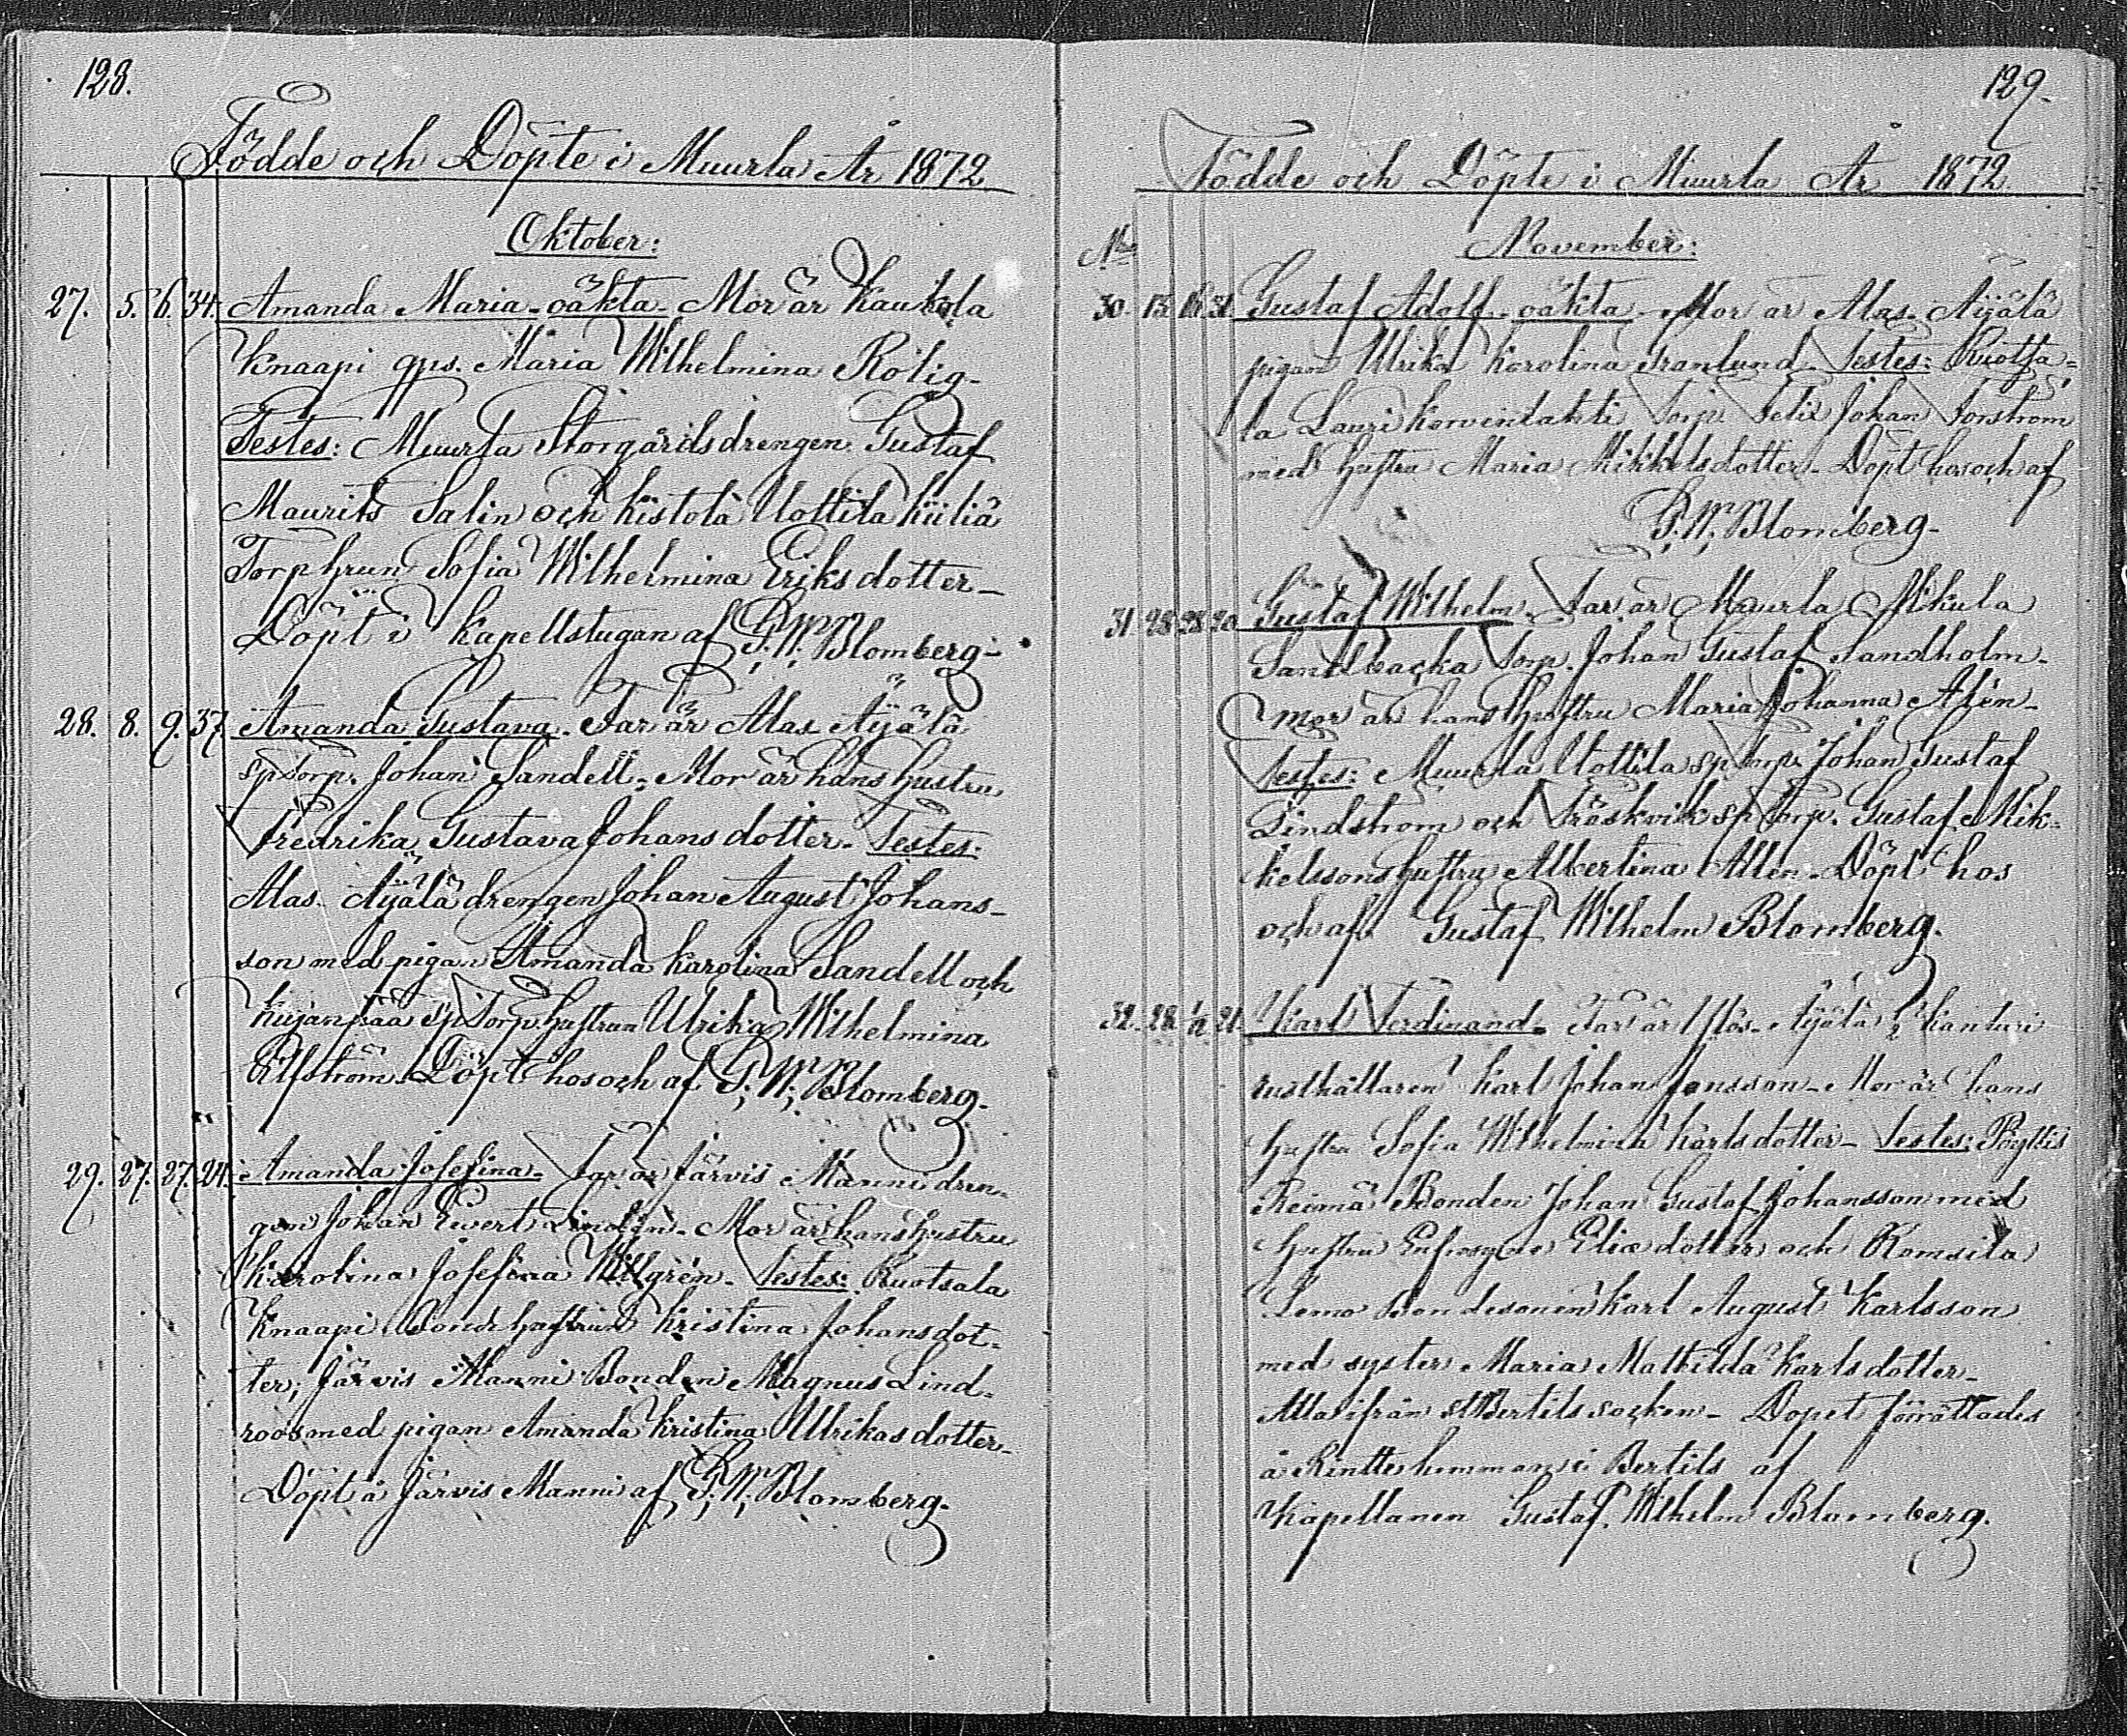 128.
Födde och Döpte i Muurla År 1872
Oktober:
27. 5. 6. 34. Amanda Maria - oäkta - Mor är Kaukola
Knaapi gps. Maria Wilhelmina Rölig -
Testes: Muurla Storgårdsdrengen Gustaf
Maurits Salin och Kistola Uottila Kiiliä
Torp hrun Sofia Wilhelmina Eriksdotter -
Döpt i Kapellstugan af G. W. Blomberg -
28. 8. 9. 37. Amanda Gustava - Far är Alas - Äijälä
sp Torp. Johan Sandell - Mor är hans hustru
Fredrika Gustava Johansdotter - Testes:
Alas - Äijälä drengen Johan August Johans-
son med pigan Amanda Karolina Sandell och
Kujanpää sp Torp. hustrun Ulrika Wilhelmina
Elfström - Döpt hos och af G. W. Blomberg -
29. 27. 27. 24. Amanda Josefina - Far är Järvis Manni dren-
gen Johan Evert - Mor är hans hustru
Karolina Josefina Willgrén - Testes: Ruotsala
Knaapi Bonde hustrun Kristina Johansdot-
ter; Järvis Manni Bonden Magnus Lind-
roos med pigan Amanda Kristina Ulrikasdotter -
Döpt å Järvis Manni af G. W. Blomberg -
129.
Födde och Döpte i Muurla År 1872
No
November:
30. 15. 16. 31. Gustaf Adolf - oäkta - Mor är Alas - Äijälä
pigan Ulrika Karolina Granlund - Testes: Ruotsa-
la Lauri Korvenlahti Torp. Felix Johan Forström
med hustru Maria Mikkelsdotter - Döpt hos och af
G. W. Blomberg -
31. 28. 28. 20. Gustaf Wilhelm - Far är Muurla Mikula
Sandbacka Torp. Johan Gustaf Sandholm -
mor är hans hustru Maria Johanna Alén -
Testes: Muurla Uottila sp Torp. Johan Gustaf
Lindström och Träskvik sp Torp. Gustaf Mik-
kelssons hustru Albertina Allén - Döpt hos
och af Gustaf Wilhelm Blomberg.
32. 28. 1/12 21. Karl Ferdinand - Far är Äijälä 1/2 Kanturi
rusthållaren Karl Johan Jonsson - Mor är hans
hustru Sofia Wilhelmina Karlsdotter - Testes: Pöyttis
Reimä Bonden Johan Gustaf Johansson med
hustru Eufrosyne Eliædotter och Romsila
Lemo Bondesonen Karl August Karlsson
med syster Maria Mathilda Karlsdotter -
Alla ifrån St Bertils socken - Dopet förrättades
å Rintte hemman i Bertils af
Kapellanen Gustaf Wilhelm Blomberg.